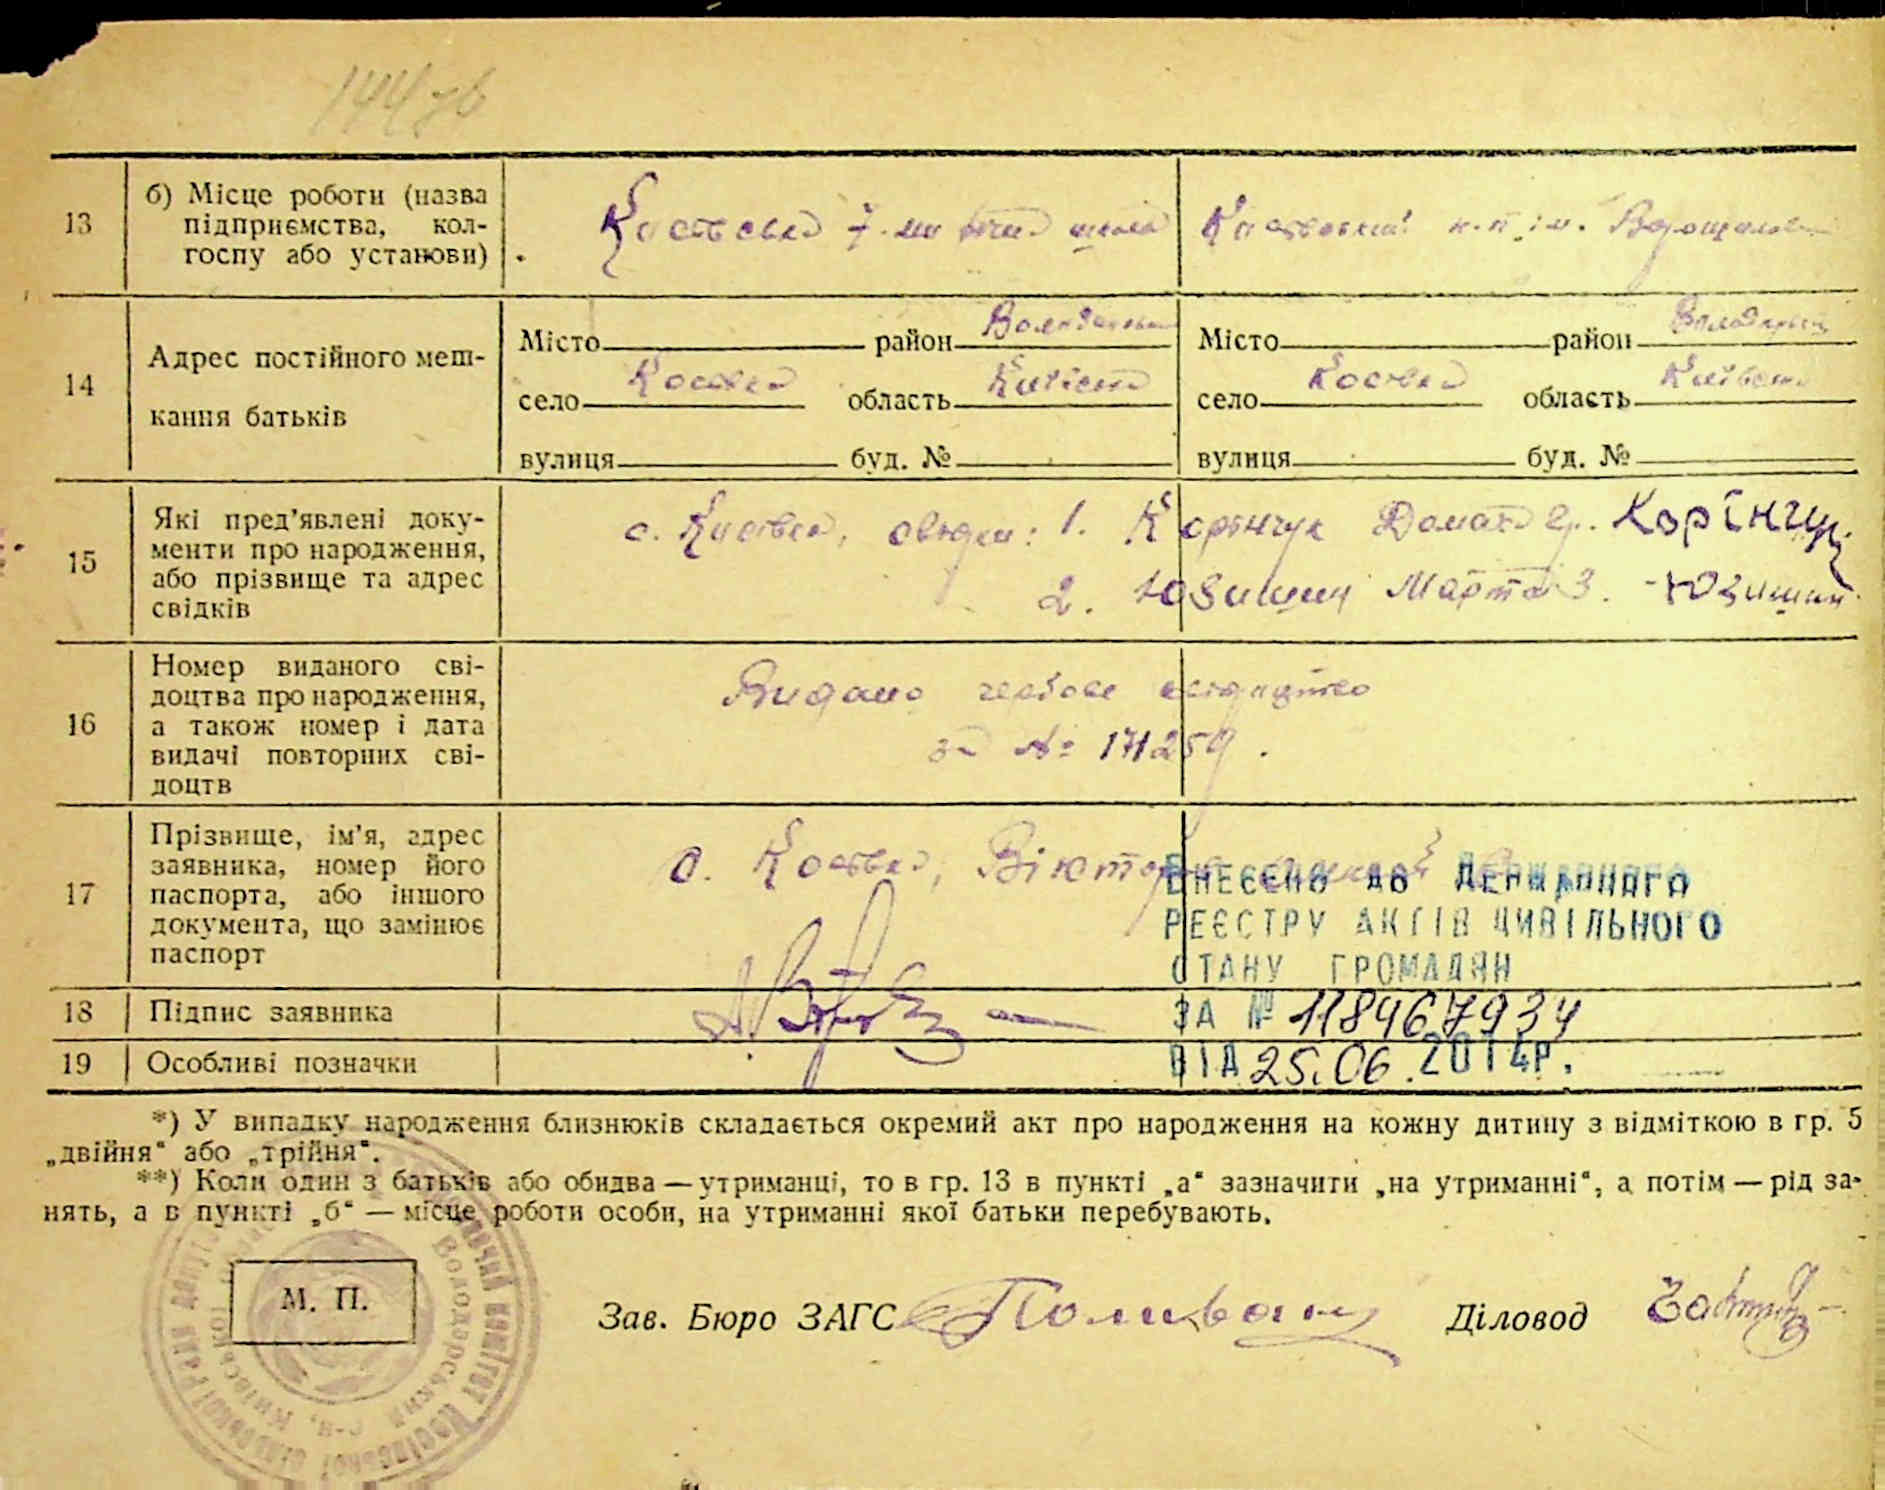 144 зв
13
б) Місце роботи (назва
підприємства, кол-
госпу або установи)
Косівська 7-ми річна школа
Косівський к.п. ім. Ворошилова
14
Адрес постійного меш-
кання батьків
Місто район Володарський
село Косівка область Київська
вулиця буд. №
Місто район Володарський
село Косівка область Київська
вулиця буд. №
15
Які пред'явлені доку-
менти про народження,
або прізвище та адрес
свідків
с. Косівка, свідки: 1. Корінчук Домаха Гр. Корінчук
2. Юзишин Марта З. Юзишин
16
Номер виданого сві-
доцтва про народження,
а також номер і дата
видачі повторних сві-
доцтв
Видано свідоцтво
за № 171259.
17
Прізвище, ім'я, адрес
заявника, номер його
паспорта, або іншого
документа, що замінює
паспорт
с. Косівка,
ВНЕСЕНО ДО ДЕРЖАВНОГО
РЕЄСТРУ АКТІВ ЦИВІЛЬНОГО
СТАНУ ГРОМАДЯН
ЗА № 118467934
ВІД 25.06.2014р.
18 Підпис заявника
19 Особливі позначки
*) У випадку народження близнюків складається окремий акт про народження на кожну дитину з відміткою в гр. 5
„двійня“ або „трійня“.
**) Коли один з батьків або обидва — утриманці, то в гр. 13 в пункті „а“ зазначити „на утриманні“, а потім — рід за-
нять, а в пункті „б“ — місце роботи особи, на утриманні якої батьки перебувають.
М. П.
Зав. Бюро ЗАГС Поливан Діловод